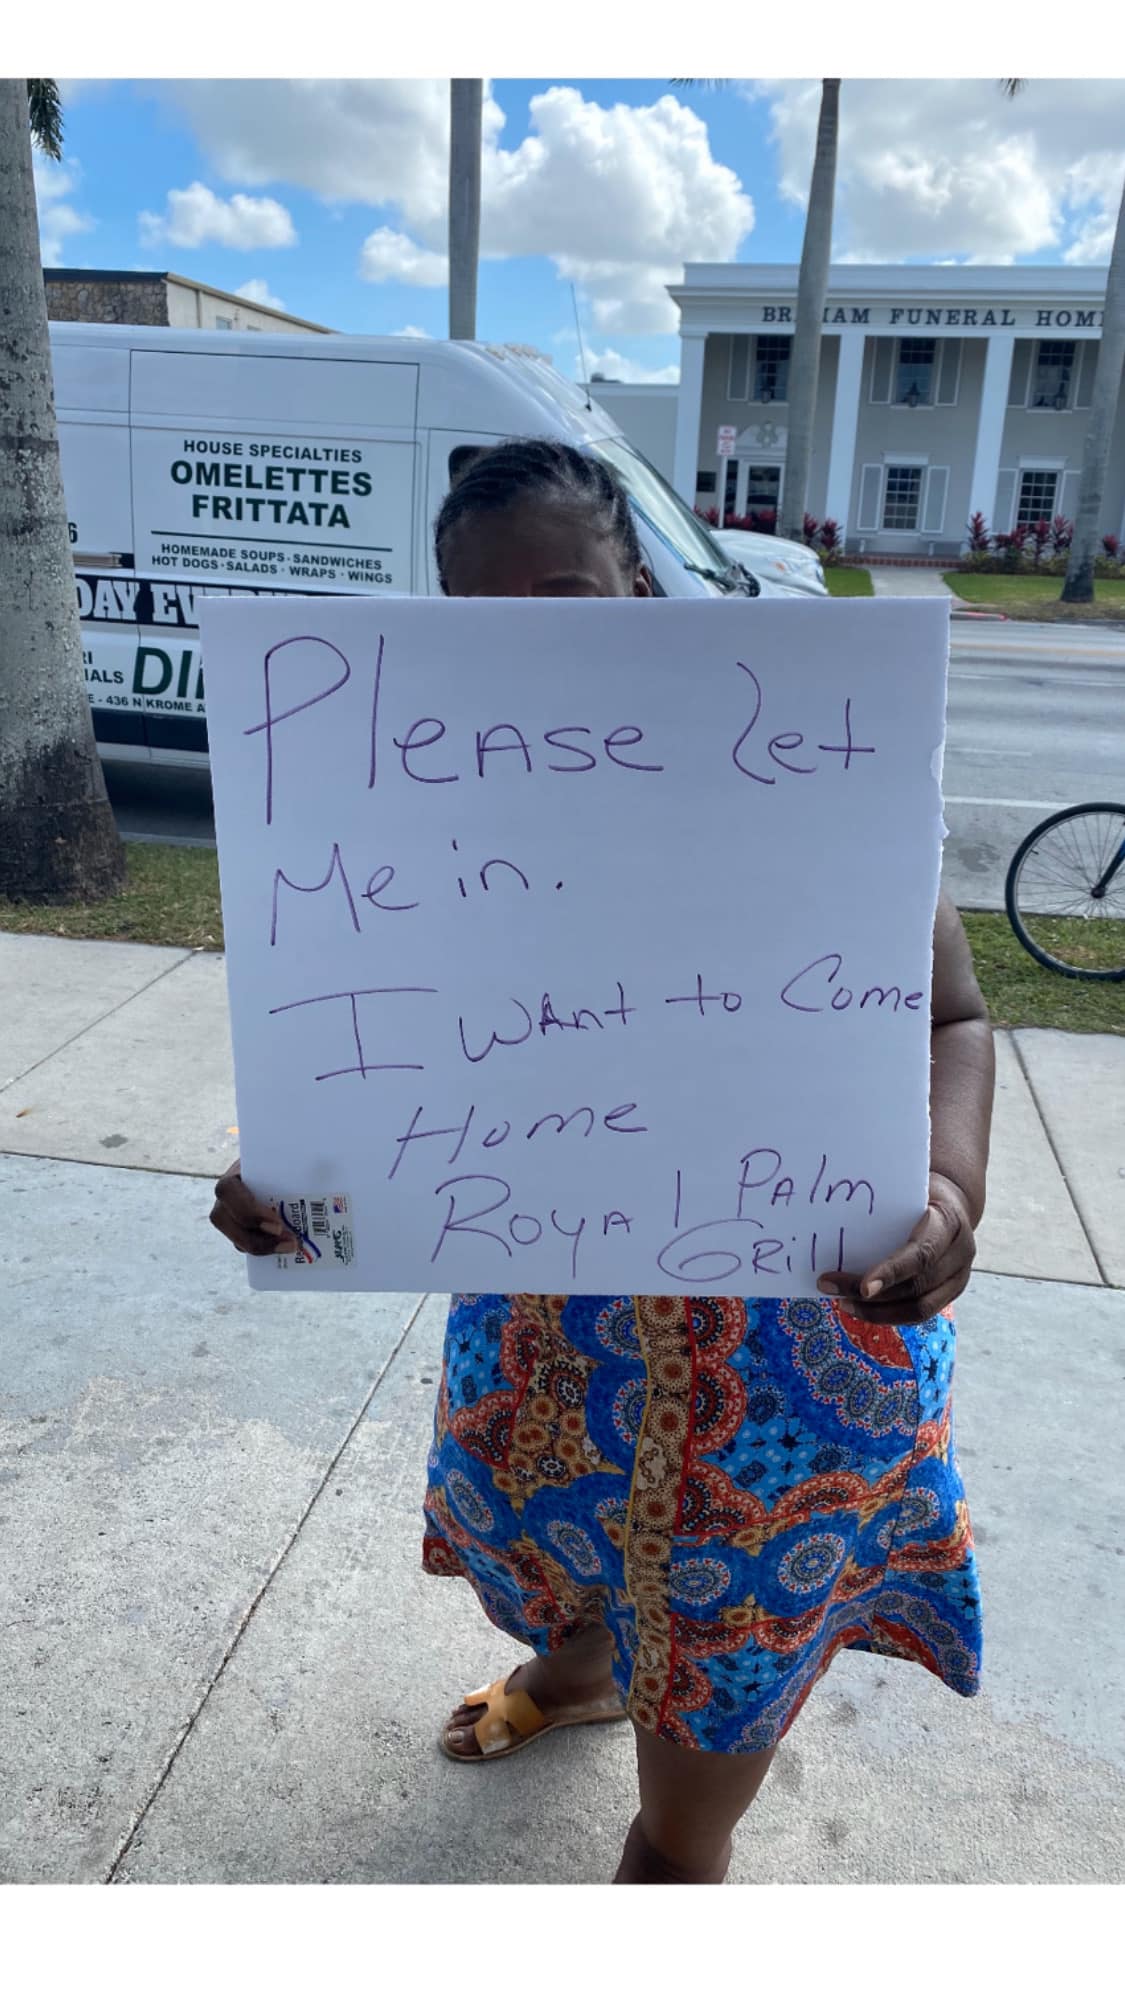 BRANHAM FUNERAL HOM
HOUSE SPECIALTIES
OMELETTES
FRITTATA
HOMEMADE SOUPS · SANDWICHES
HOT DOGS · SALADS · WRAPS · WINGS
6
DAY
IALS DI
E - 436 N KROME A
Please Let
Me in.
I WAnt to Come
Home
RoyAl PAlm
GRill